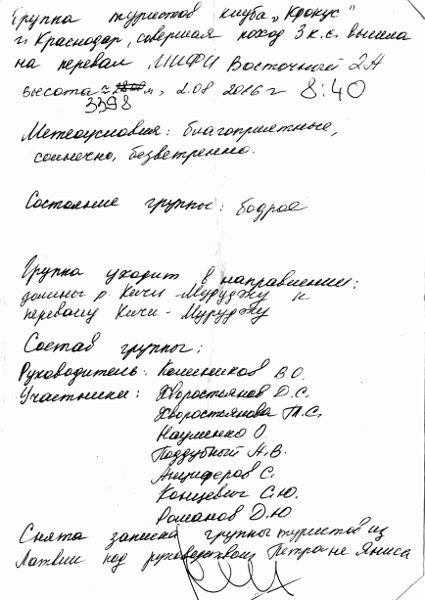 Группа туристов клуба „Крокус"
г. Краснодар, совершая поход 3 к.с. вышла
на перевал МИФИ Восточный 2А
высота ≈ м, 2.08 2016 г 8:40
3398
Метеоусловия: благоприятные,
солнечно, безветренно.
Состояние группы: бодрое
Группа уходит в направлении:
долины р. Кичи-Муруджу к
перевалу Кичи-Муруджу
Состав группы:
Руководитель: В О.
Участники: Хворостянов Д.С.
Хворостянова Т.С.
Науменко О.
Поддубный А.В.
Анциферов С.
Концевич С.Ю.
Романов Д.Ю
Снята записка группы туристов из
Латвии под руководством Яниса